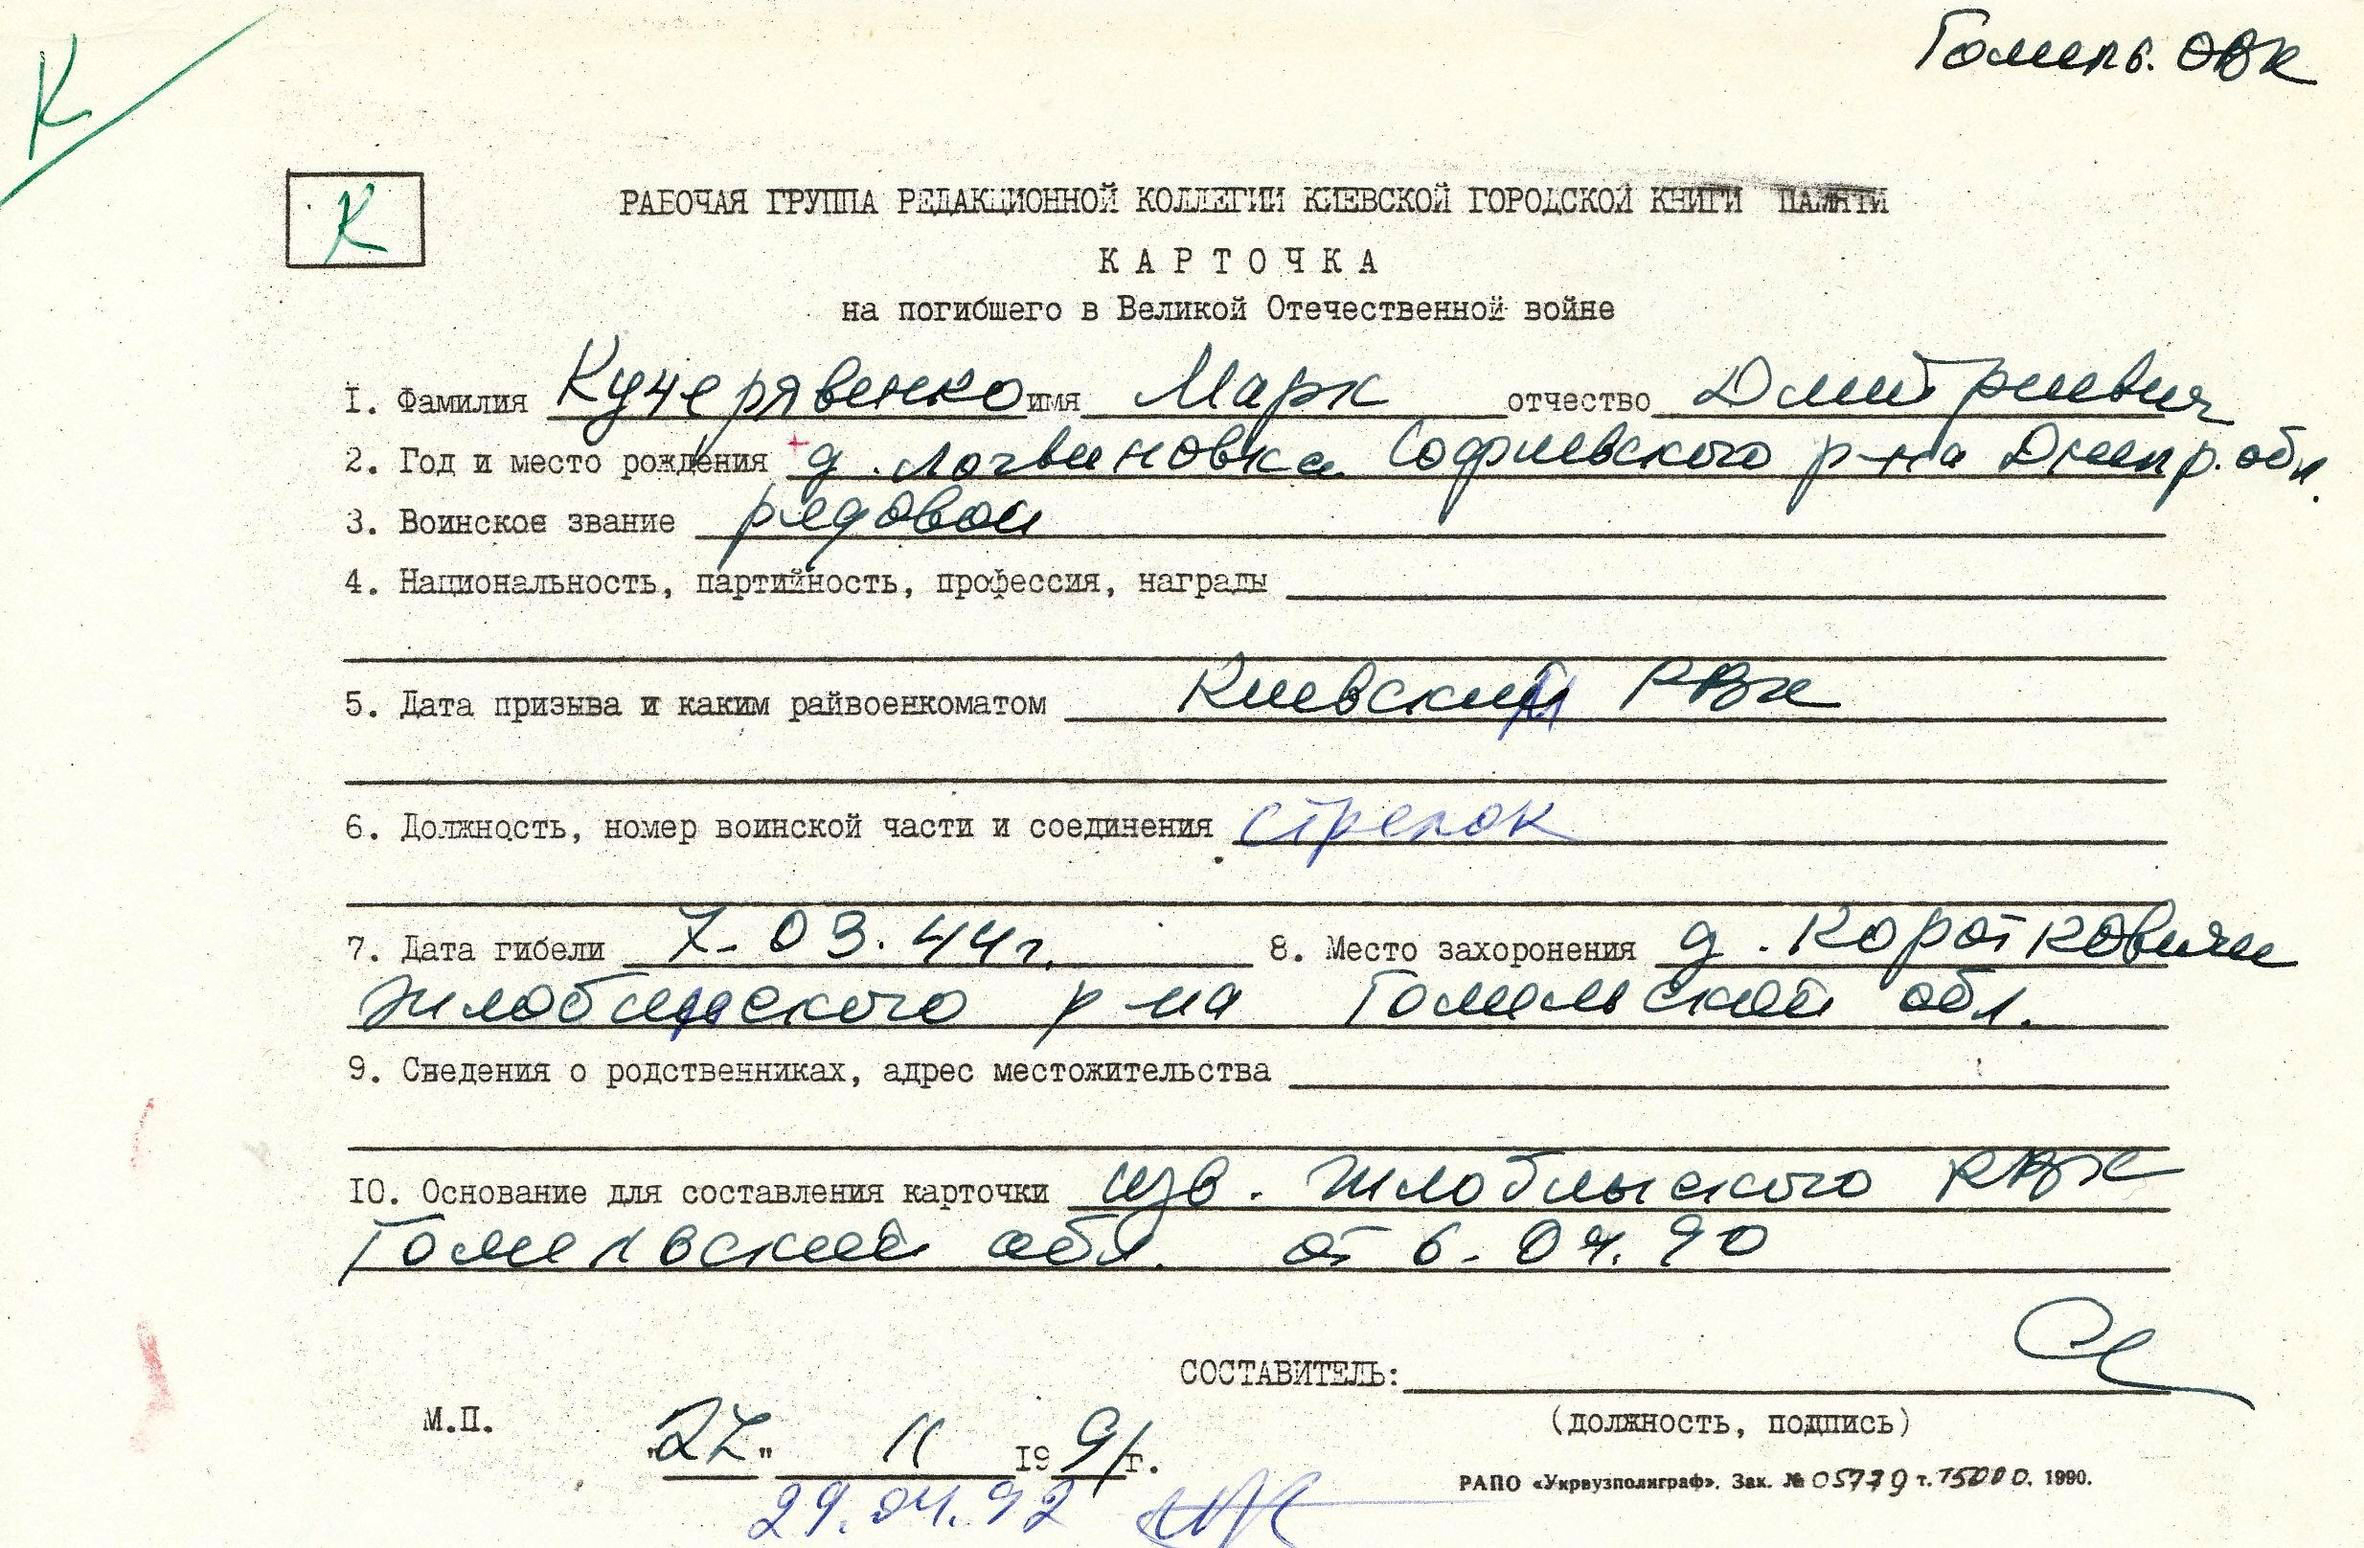 К
Гомельс. ОВК
К
РАБОЧАЯ ГРУППА РЕДАКЦИОННОЙ КОЛЛЕГИИ КИЕВСКОЙ ГОРОДСКОЙ КНИГИ ПАМЯТИ
КАРТОЧКА
на погибшего в Великой Отечественной войне
I. Фамилия Кучерявенко имя Марк отчество Дмитриевич
2. Год и место рождения д. Логвиновка Софиевского р-на Днепр. обл.
3. Воинское звание рядовой
4. Национальность, партийность, профессия, награды
5. Дата призыва и каким райвоенкоматом Киевский РВК
6. Должность, номер воинской части и соединения стрелок
7. Дата гибели 7-03.44г. 8. Место захоронения д. Коротковичи
Жлобинского р-на Гомельской обл.
9. Сведения о родственниках, адрес местожительства
IO. Основание для составления карточки изв. Жлобинского РВК
Гомельской обл. от 6.04.90
СОСТАВИТЕЛЬ:
М.П. (должность, подпись)
"27" 11 1991г.
РАПО «Укрвузполиграф». Зак. № 05779 т. 15000. 1990.
29.04.92